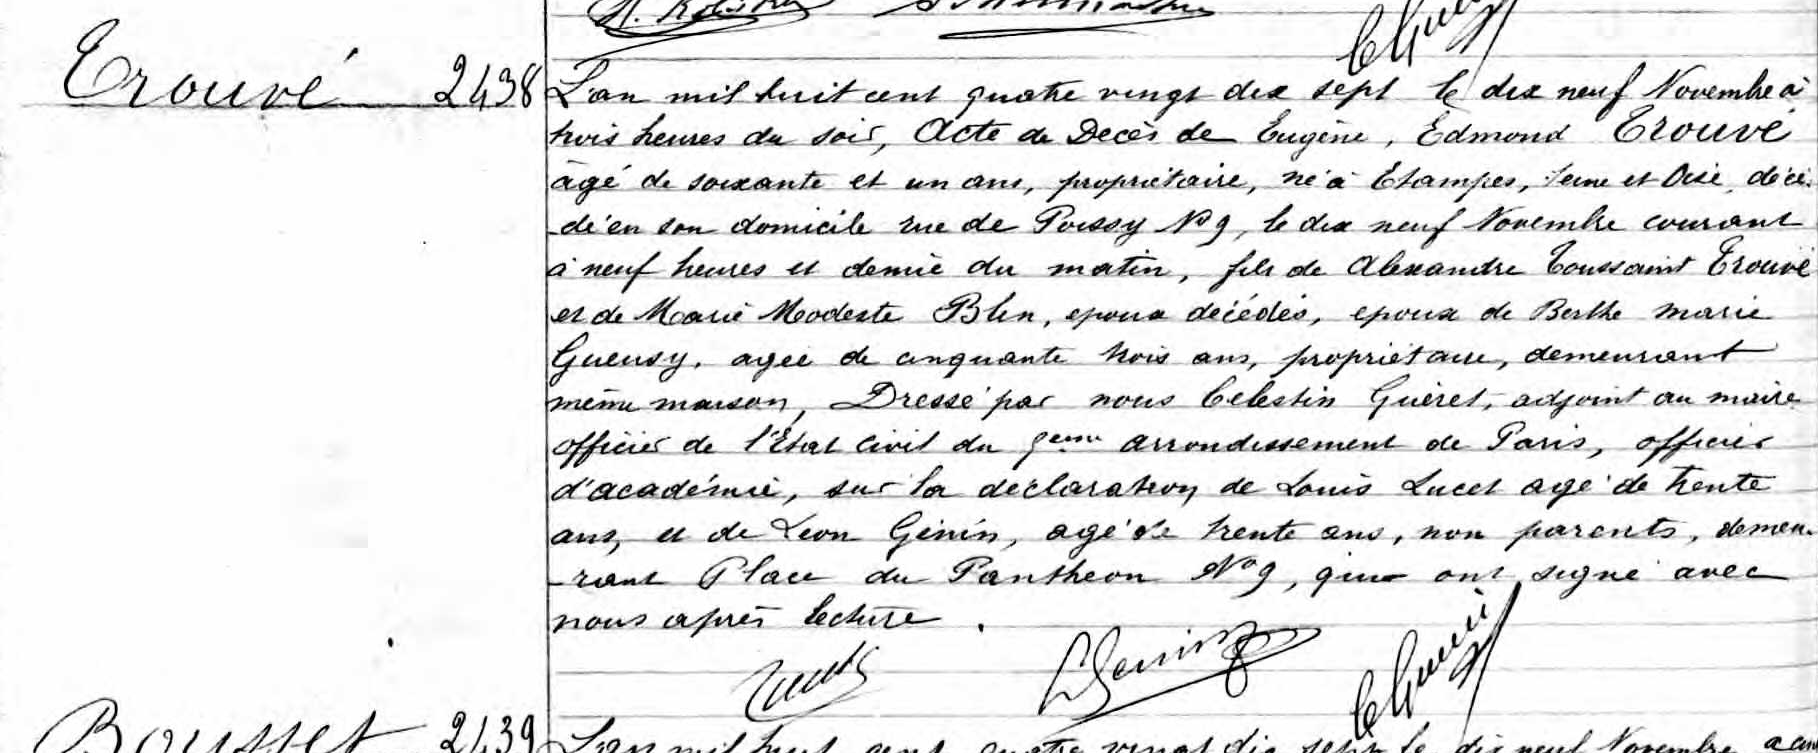 Trouvé 2438
L'an mil huit cent quatre vingt dix sept le dix neuf Novembre à
trois heures du soir, Acte de Décès de Eugène, Edmond Trouvé
âgé de soixante et un ans, propriétaire, né à Etampes, Seine et Oise, décé-
-dé en son domicile rue de Poissy No 9, le dix neuf Novembre courant
à neuf heures et demie du matin, fils de Alexandre Toussaint Trouvé
et de Marie Modeste Blin, epoux décédés, epoux de Berthe Marie
Gueusy, agée de cinquante trois ans, propriétaire, demeurant
même maison, Dressé par nous Célestin Guéret, adjoint au maire
officier de l'Etat Civil du 5eme arrondissement de Paris, officier
d'académie, sur la déclaration de Louis Lucet agé de trente
ans, et de Léon Génin, agé de trente ans, non parents, demeu-
-rant Place du Panthéon No 9, qui ont signé avec
nous après lecture.
LGenin
Bousset 2439
L'an mil huit cent quatre vingt dix sept le dix neuf Novembre